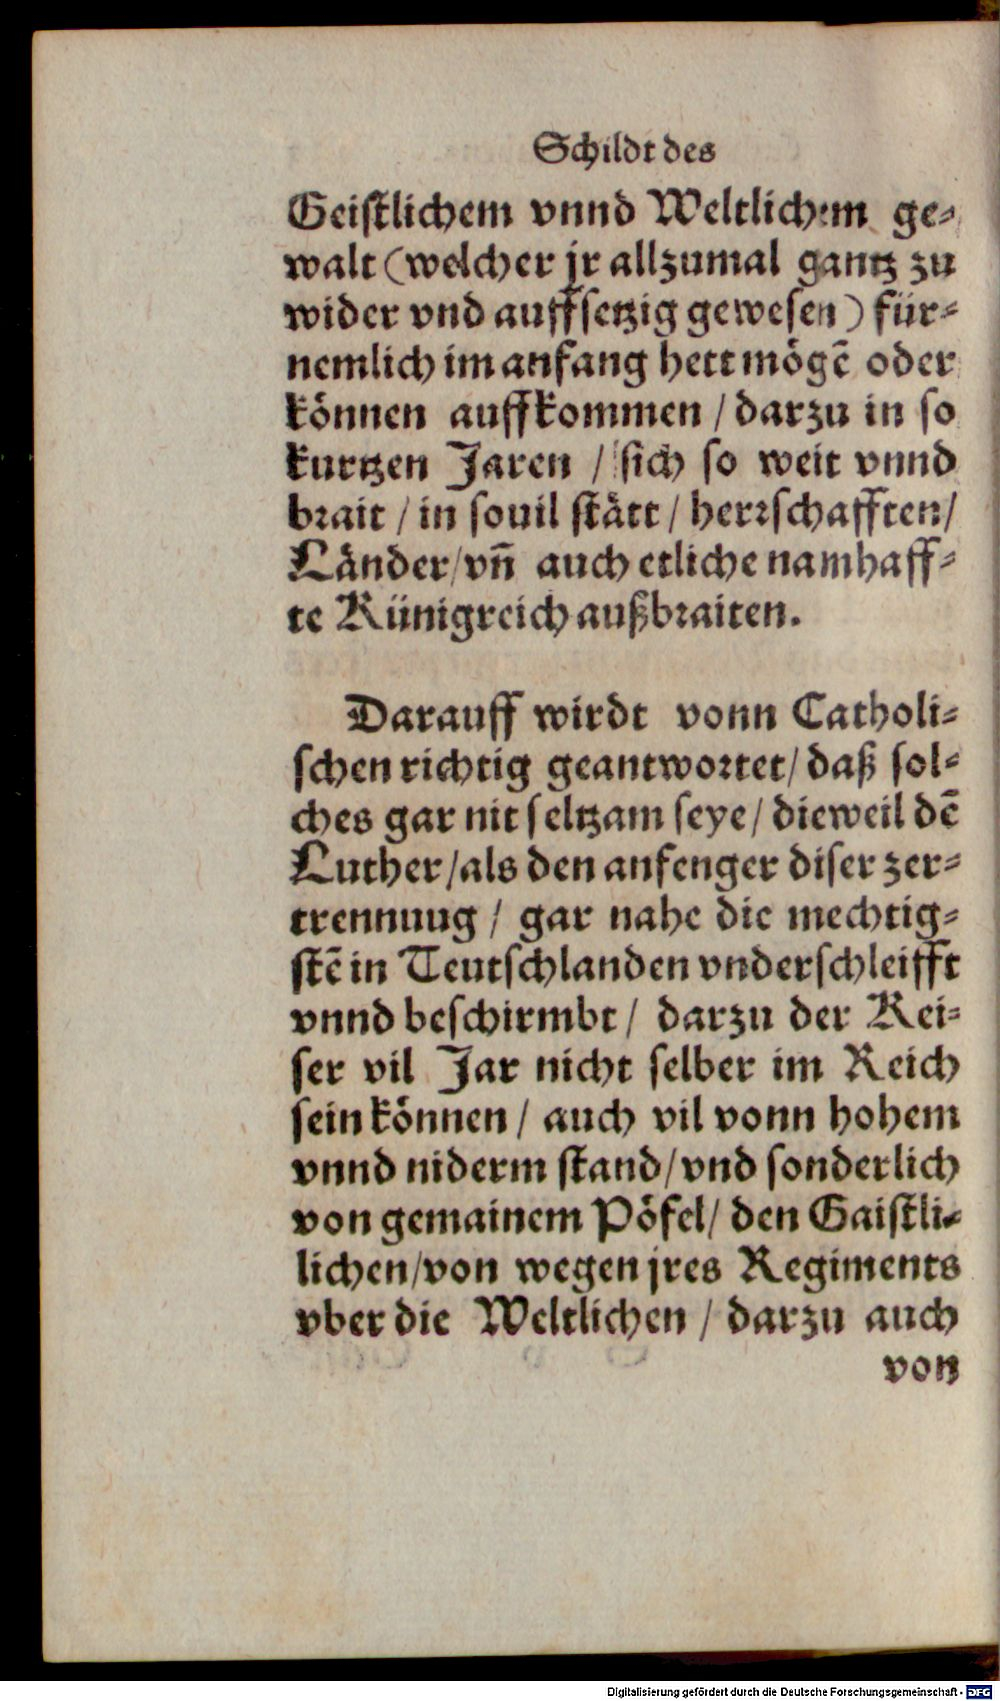 Schildt des
Geistlichem vnnd Weltlichem ge-
walt (welcher jr allzumal gantz zu
wider vnd auffsetzig gewesen) für-
nemlich im anfang hett mögē oder
können auffkommen / darzu in so
kurtzen Jaren / sich so weit vnnd
brait / in souil stätt / herrschafften /
Länder / vñ auch etliche namhaff-
te Künigreich außbraiten.
Darauff wirdt vonn Catholi-
schen richtig geantwortet / daß sol-
ches gar nit seltzam seye / dieweil dē
Luther / als den anfenger diser zer-
trennuug / gar nahe die mechtig-
stē in Teutschlanden vnderschleifft
vnnd beschirmbt / darzu der Kei-
ser vil Jar nicht selber im Reich
sein können / auch vil vonn hohem
vnnd niderm stand / vnd sonderlich
von gemainem Pöfel / den Gaistli-
lichen / von wegen jres Regiments
vber die Weltlichen / darzu auch
von
Digitalisierung gefördert durch die Deutsche Forschungsgemeinschaft - DFG